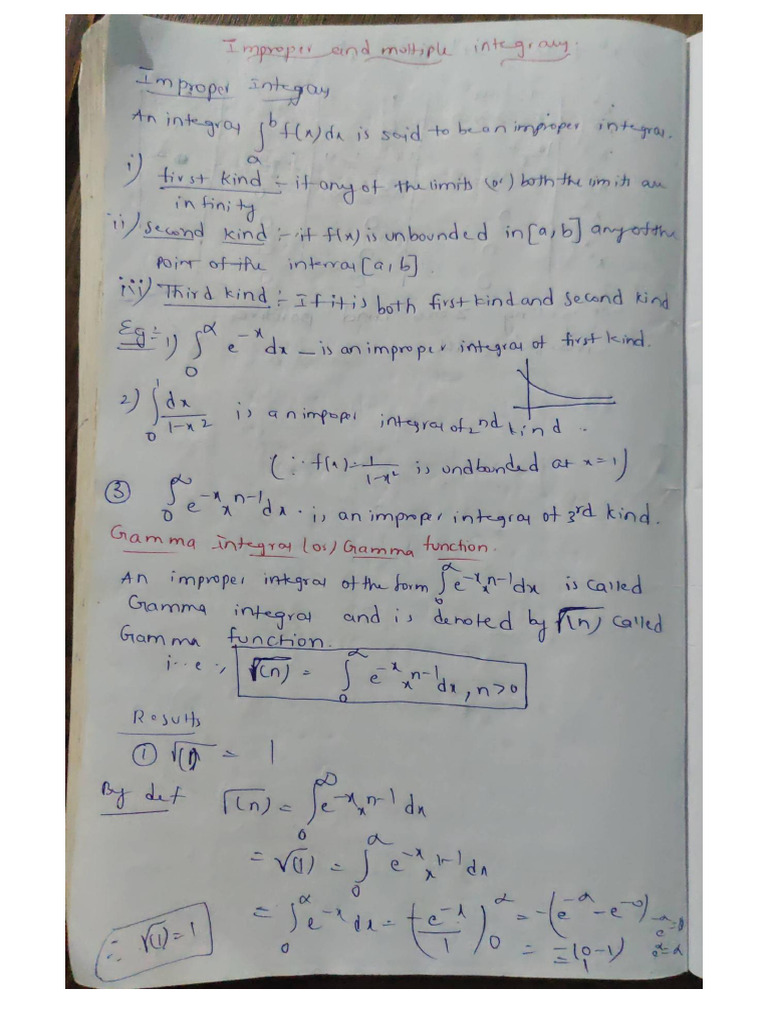 Improper and multiple integrals.
Improper Integrals
An integral ∫_a^b f(x)dx is said to be an improper integral.
i) first kind :- if any of the limits (or) both the limits are
infinity
ii) second kind :- if f(x) is unbounded in [a,b] any of the
point of the interval [a,b]
iii) Third kind :- If it is both first kind and second kind
Eg:- 1) ∫_0^∞ e^{-x} dx - is an improper integral of first kind.
2) ∫_0^1 dx/(1-x^2) is an improper integral of 2nd kind.
(∵ f(x) = 1/(1-x^2) is undbounded at x=1)
③ ∫_0^∞ e^{-x} x^{n-1} dx. is an improper integral of 3rd kind.
Gamma integral (or) Gamma function.
An improper integral of the form ∫_0^∞ e^{-x} x^{n-1} dx is called
Gamma integral and is denoted by Γ(n) called
Gamma function.
i.e., Γ(n) = ∫_0^∞ e^{-x} x^{n-1} dx, n>0
Results
① Γ(1) = 1
By def Γ(n) = ∫_0^∞ e^{-x} x^{n-1} dx
= Γ(1) = ∫_0^∞ e^{-x} x^{1-1} dx
= ∫_0^∞ e^{-x} dx = (-e^{-x}/1)_0^∞ = -(e^{-∞} - e^{-0})
= -(0-1)
= 1
e^{-∞}=0
∴ Γ(1) = 1